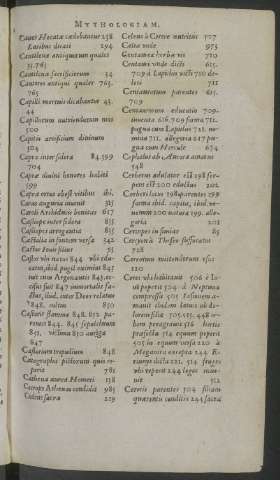 MYTHOLOGIAM.
Canes Hecatæ cælebantur 258
Latibus dicati 294
Cantilenæ antiquorum quales
31.763
Cantilena sacrificiorum 34
Cantores antiqui quales 763.
765
Capilli mortuis dicabantur 43.
44
Capillorum nutriendorum mos
500
Capitis artificium divinum
504
Capra inter sidera 84.399
704
Capræ divini honores habiti
399
Capra cursu abest vitibus ibi.
Carus augurum inventi 315
Caroli Archidamie benitas 617
Cassiope inter sidera 855
Cassiopes arrogantia 855
Castalia in fontem versa 342
Castor Iouis filius 55
Castor vbi natus 844 vbi edu-
catus, ibid. pugil eximius 845
iuit cum Argonautis 843. oc-
cisus fuit 847 immortalis fa-
ctus, ibid. inter Deos relatus
848. cultus 850
Castoris flamma 848. 852 pa-
rentes 844. 845 sepulchrum
851. victima 850 auriga
647
Castorum tripudium 848
Catagraphi picturam quis re-
perit 781
Cathena aurea Homeri 138
Cecrops Athenas condidit 985
Cedrus sacra 219
Celeus à Cerere nutritus 507
Celsa mole 973
Centaurea herba vis 710
Centauri vnde dicti 615.
709 à Lapithis victi 710 de-
leti 711
Centaurorum parentes 615.
709
Centaurorum educatio 709.
iuuenta 616.709 forma 711.
pugna cum Lapithis 711. no-
mina 711. allegoria 617 pu-
gna cum Hercule 674
Cephalus ab Aurora amatus
548
Cerberus adulator est 198 ser-
pens est 200 edulus 201
Cerberi canis 198 parentes 199
forma ibid. caputa, ibid. ve-
nenum 200 natura 199. alle-
goria 201
Cercopes in simias 85
Cercyon à Theseo suffocatus
728
Cereorum mittendorum vsus
120
Ceres vbi habitauit 506 è Io-
ue peperit 504 à Neptuno
compressa 505 Iasionem a-
mauit eiusdem latus ab do-
lorem filiæ 505.515. 448 or-
bem peragrauit 516 hortis
præfecta 514 equum peperit
505 in equam versa 220 à
Megareis excepta 244 Eu-
rynome dicta 221. 514 fruges
vbi reperit 244 leges inue-
nit 512
Cereris parentes 504 filiam
quærentis comites 244 sacra